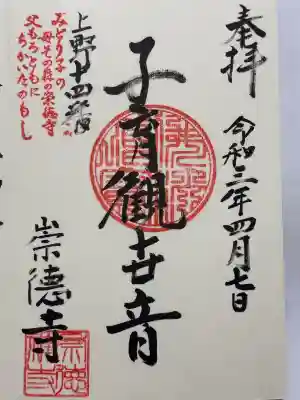 奉拝
令和三年四月七日
子育観世音
上野十四番
みどり子の
母その森の崇徳寺
父もろともに
ちかいたのもし
崇德寺